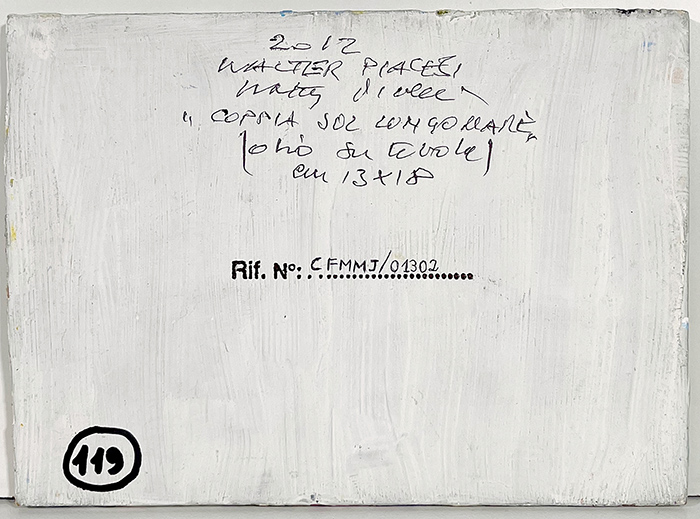 2012
WALTER PIACESI
Walter Piacesi
"COPPIA SUL LUNGOMARE"
(olio su tavola)
cm 13x18
Rif. N°: CFMMJ/01302
119